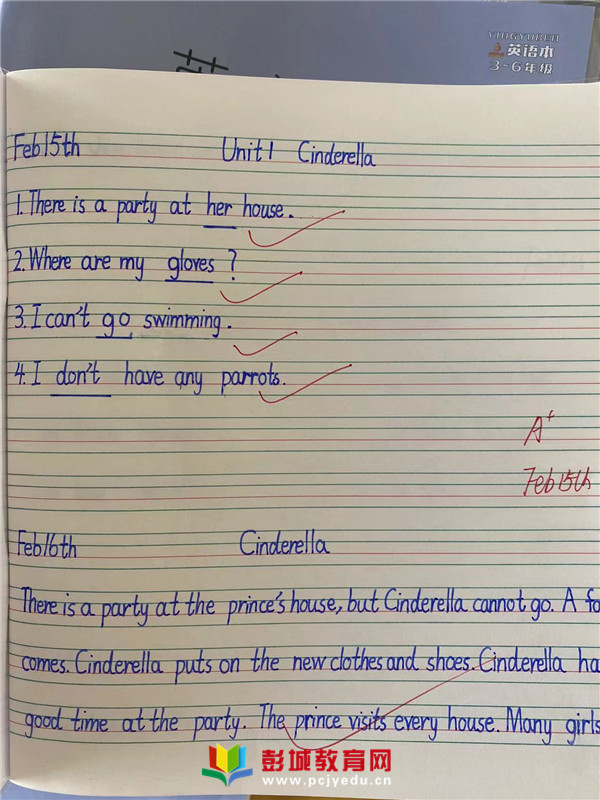 YINGYUBEN
英语本
3-6年级
Feb 15th Unit 1 Cinderella
1. There is a party at her house.
2. Where are my gloves ?
3. I can't go swimming.
4. I don't have any parrots.
A+
Feb 15th
Feb 16th Cinderella
There is a party at the prince's house, but Cinderella cannot go. A fa
comes. Cinderella puts on the new clothes and shoes. Cinderella ha
good time at the party. The prince visits every house. Many girls
彭城教育网
www.pcjyedu.cn